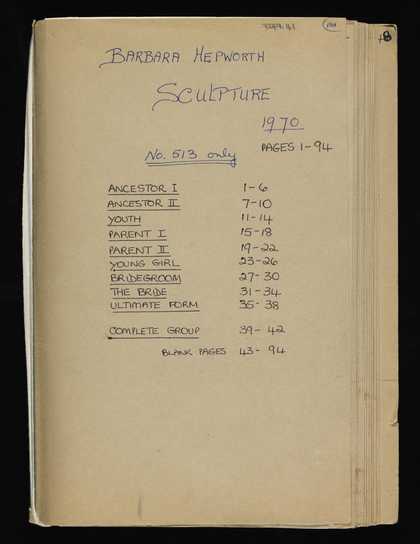 BARBARA HEPWORTH
SCULPTURE
1970
PAGES 1-94
No. 513 only
ANCESTOR I 1-6
ANCESTOR II 7-10
YOUTH 11-14
PARENT I 15-18
PARENT II 19-22
YOUNG GIRL 23-26
BRIDEGROOM 27-30
THE BRIDE 31-34
ULTIMATE FORM 35-38
COMPLETE GROUP 39-42
BLANK PAGES 43-94